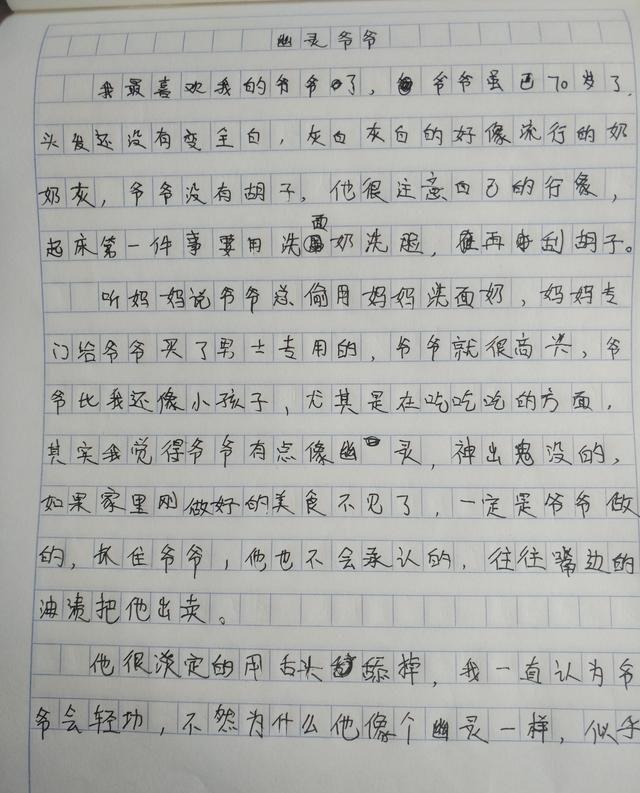 幽灵爷爷
我最喜欢我的爷爷了，爷爷虽已70岁了，
头发还没有变全白，灰白灰白的好像流行的奶
奶灰，爷爷没有胡子，他很注意自己的行象，
起床第一件事要用洗面奶洗脸，再刮胡子。
听妈妈说爷爷总偷用妈妈洗面奶，妈妈专
门给爷爷买了男士专用的，爷爷就很高兴，爷
爷比我还像小孩子，尤其是在吃吃吃的方面，
其实我觉得爷爷有点像幽灵，神出鬼没的，
如果家里刚做好的美食不见了，一定是爷爷做
的，抓住爷爷，他也不会承认的，往往嘴边的
油渍把他出卖。
他很淡定的用舌头舔掉，我一直认为爷
爷会轻功，不然为什么他像个幽灵一样，似乎